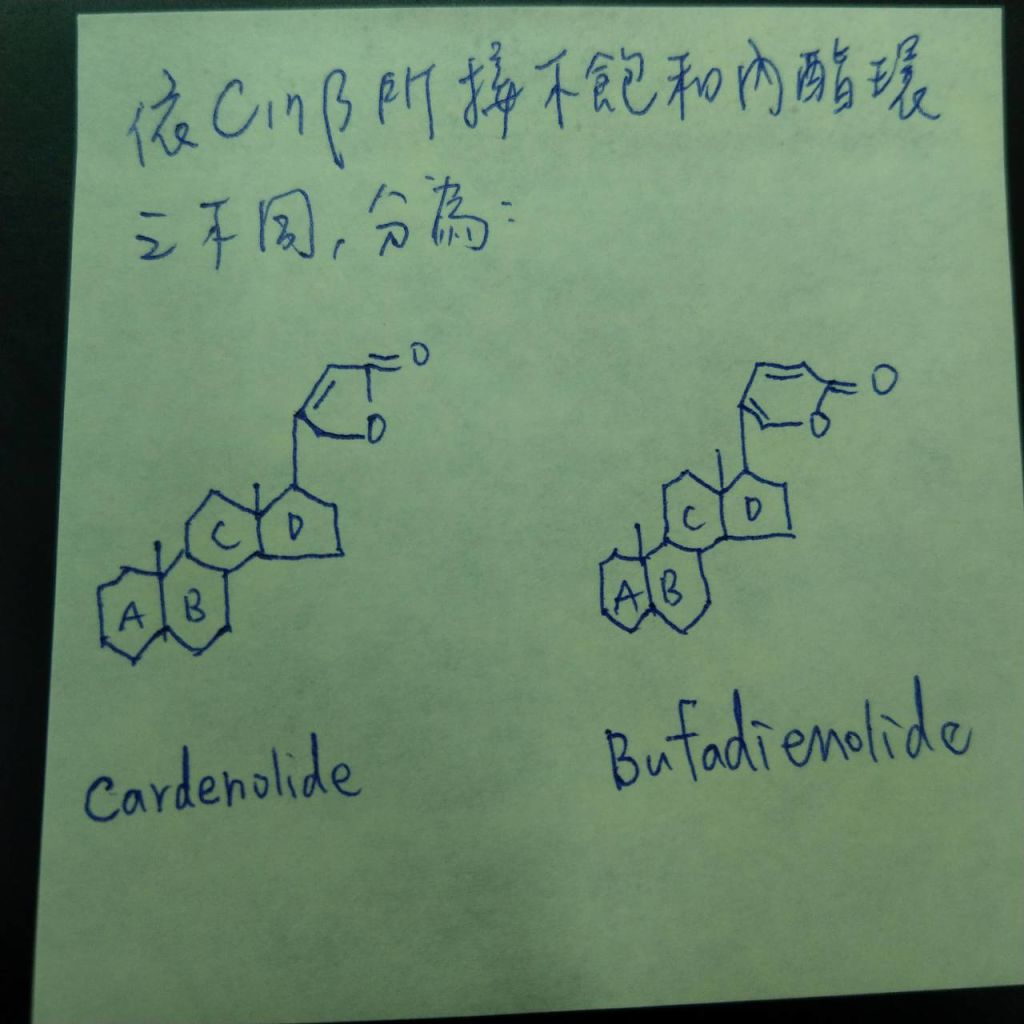 依C17β所接不飽和內酯環
之不同,分為:
O
O
O
O
C
D
A
B
C
D
A
B
Cardenolide
Bufadienolide